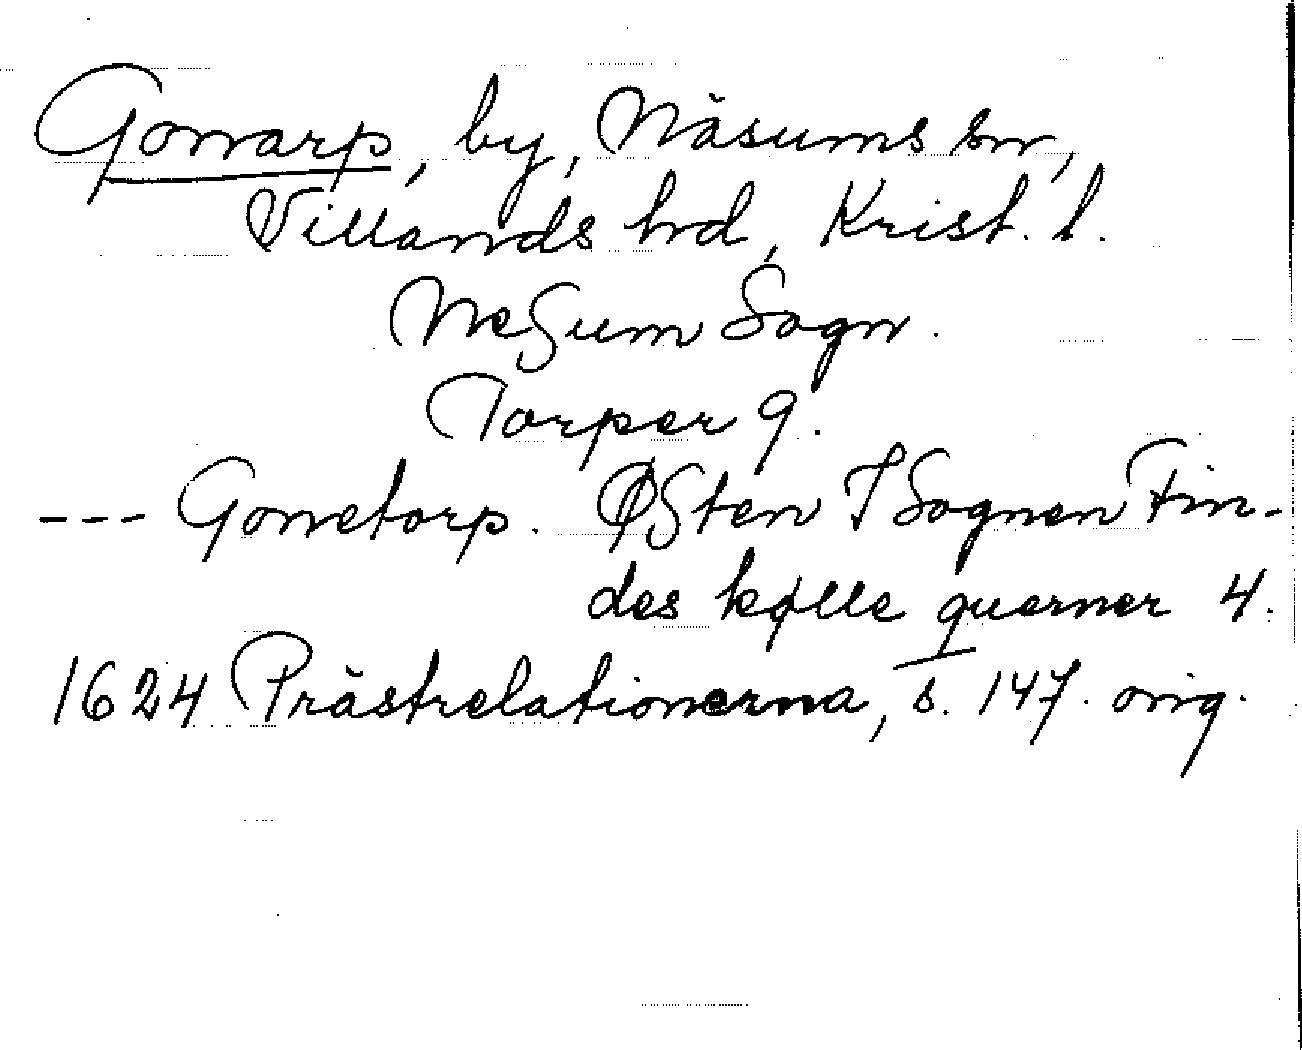 Gonarp, by, Näsums sn,
Villands hd, Krist. l.
NeSum Sogn.
Torper 9.
--- Gonnetorp. ØSten I Sognen Fin-
des kølle querner 4.
1624 Prästrelationerna, s. 147. orig.